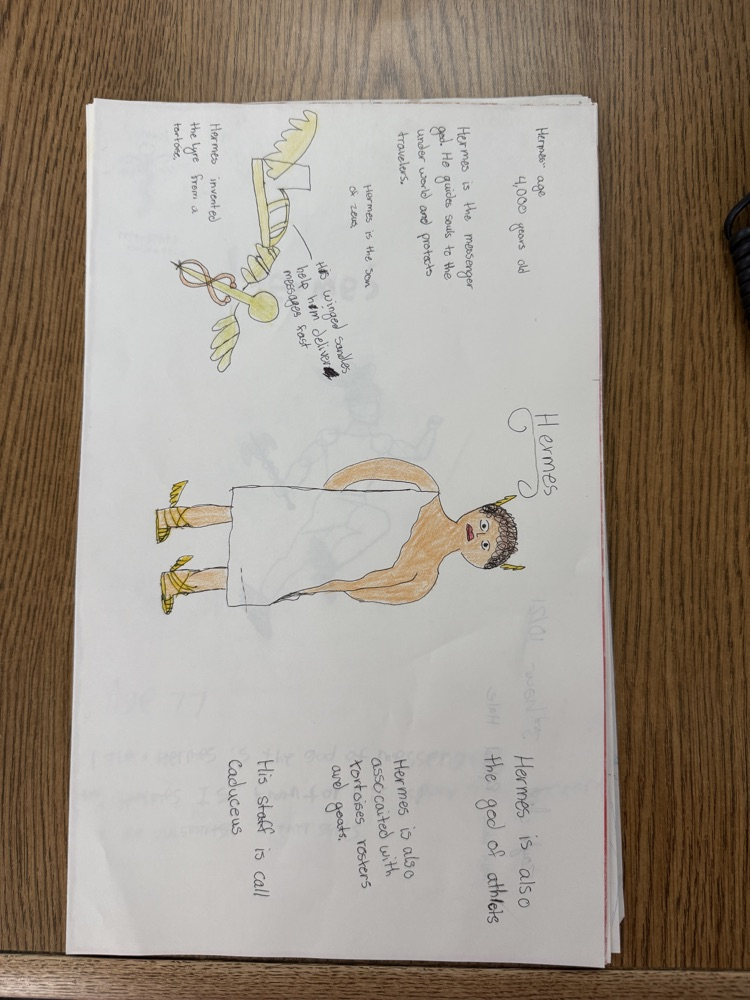 Hermes
Hermes age
4,000 years old
Hermes is the messenger
god. He guides souls to the
under world and protects
travelers.
Hermes is the son
of zeus
His winged sandles
help him deliver
messages fast
Hermes invented
the lyre from a
tortoise.
Hermes is also
the god of athlets
Hermes is also
assocaited with
tortoises rosters
and goats.
His staff is call
Caduceus